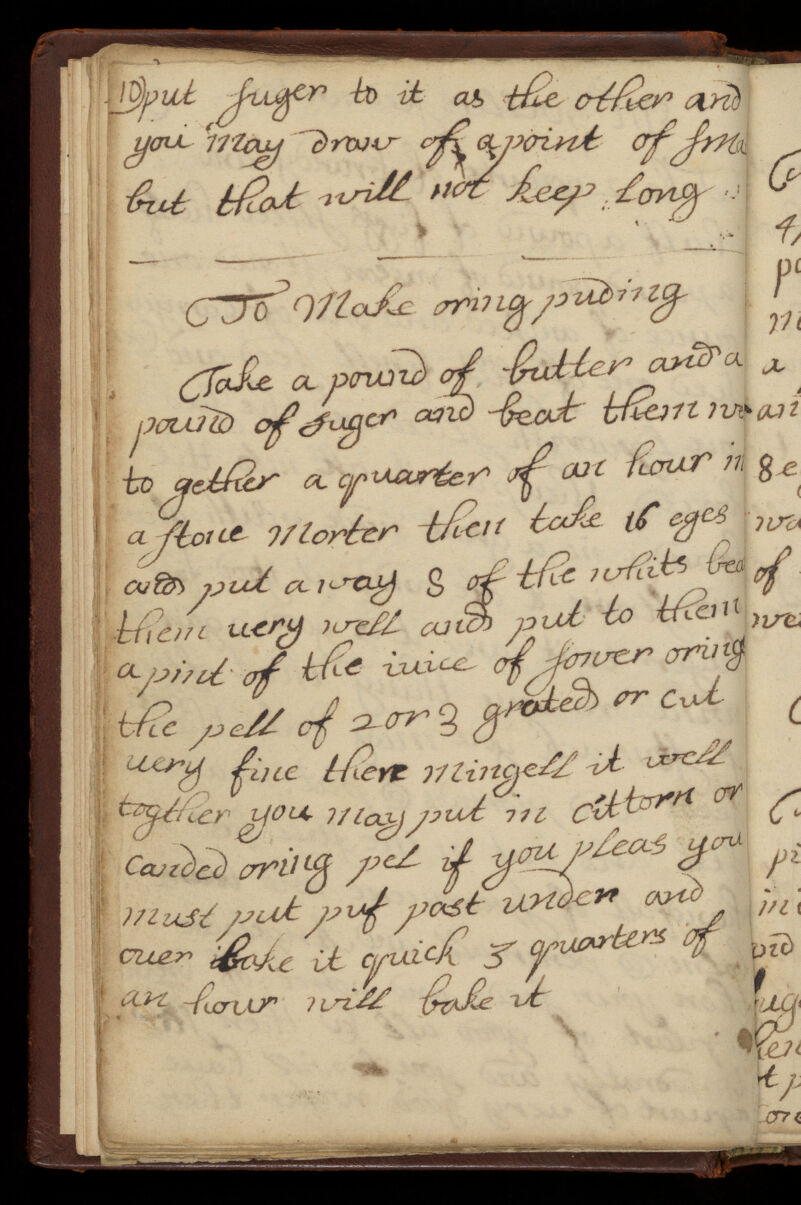 10) put suger to it as the other and
you may draw of a point of sma
but that will not keep long
To Make oring puding
Take a pound of butter and a
pound of suger and beat them we
to gether a quarter of an hour in
a stone Morter then take 16 eges
and put away 8 of the whits bea
them uery well and put to them
a pint of the iuice of sower oring
the pell of 2 or 3 grated or cut
uery fine then mingell it well
togther you may put in cittorn or
canded oring pel if you pleas you
must put puf past under and
ouer bake it quick 3 quarters of
an hour will bake it
4
po
a
an
8 e
wa
of
we
pi
in
ug
t p